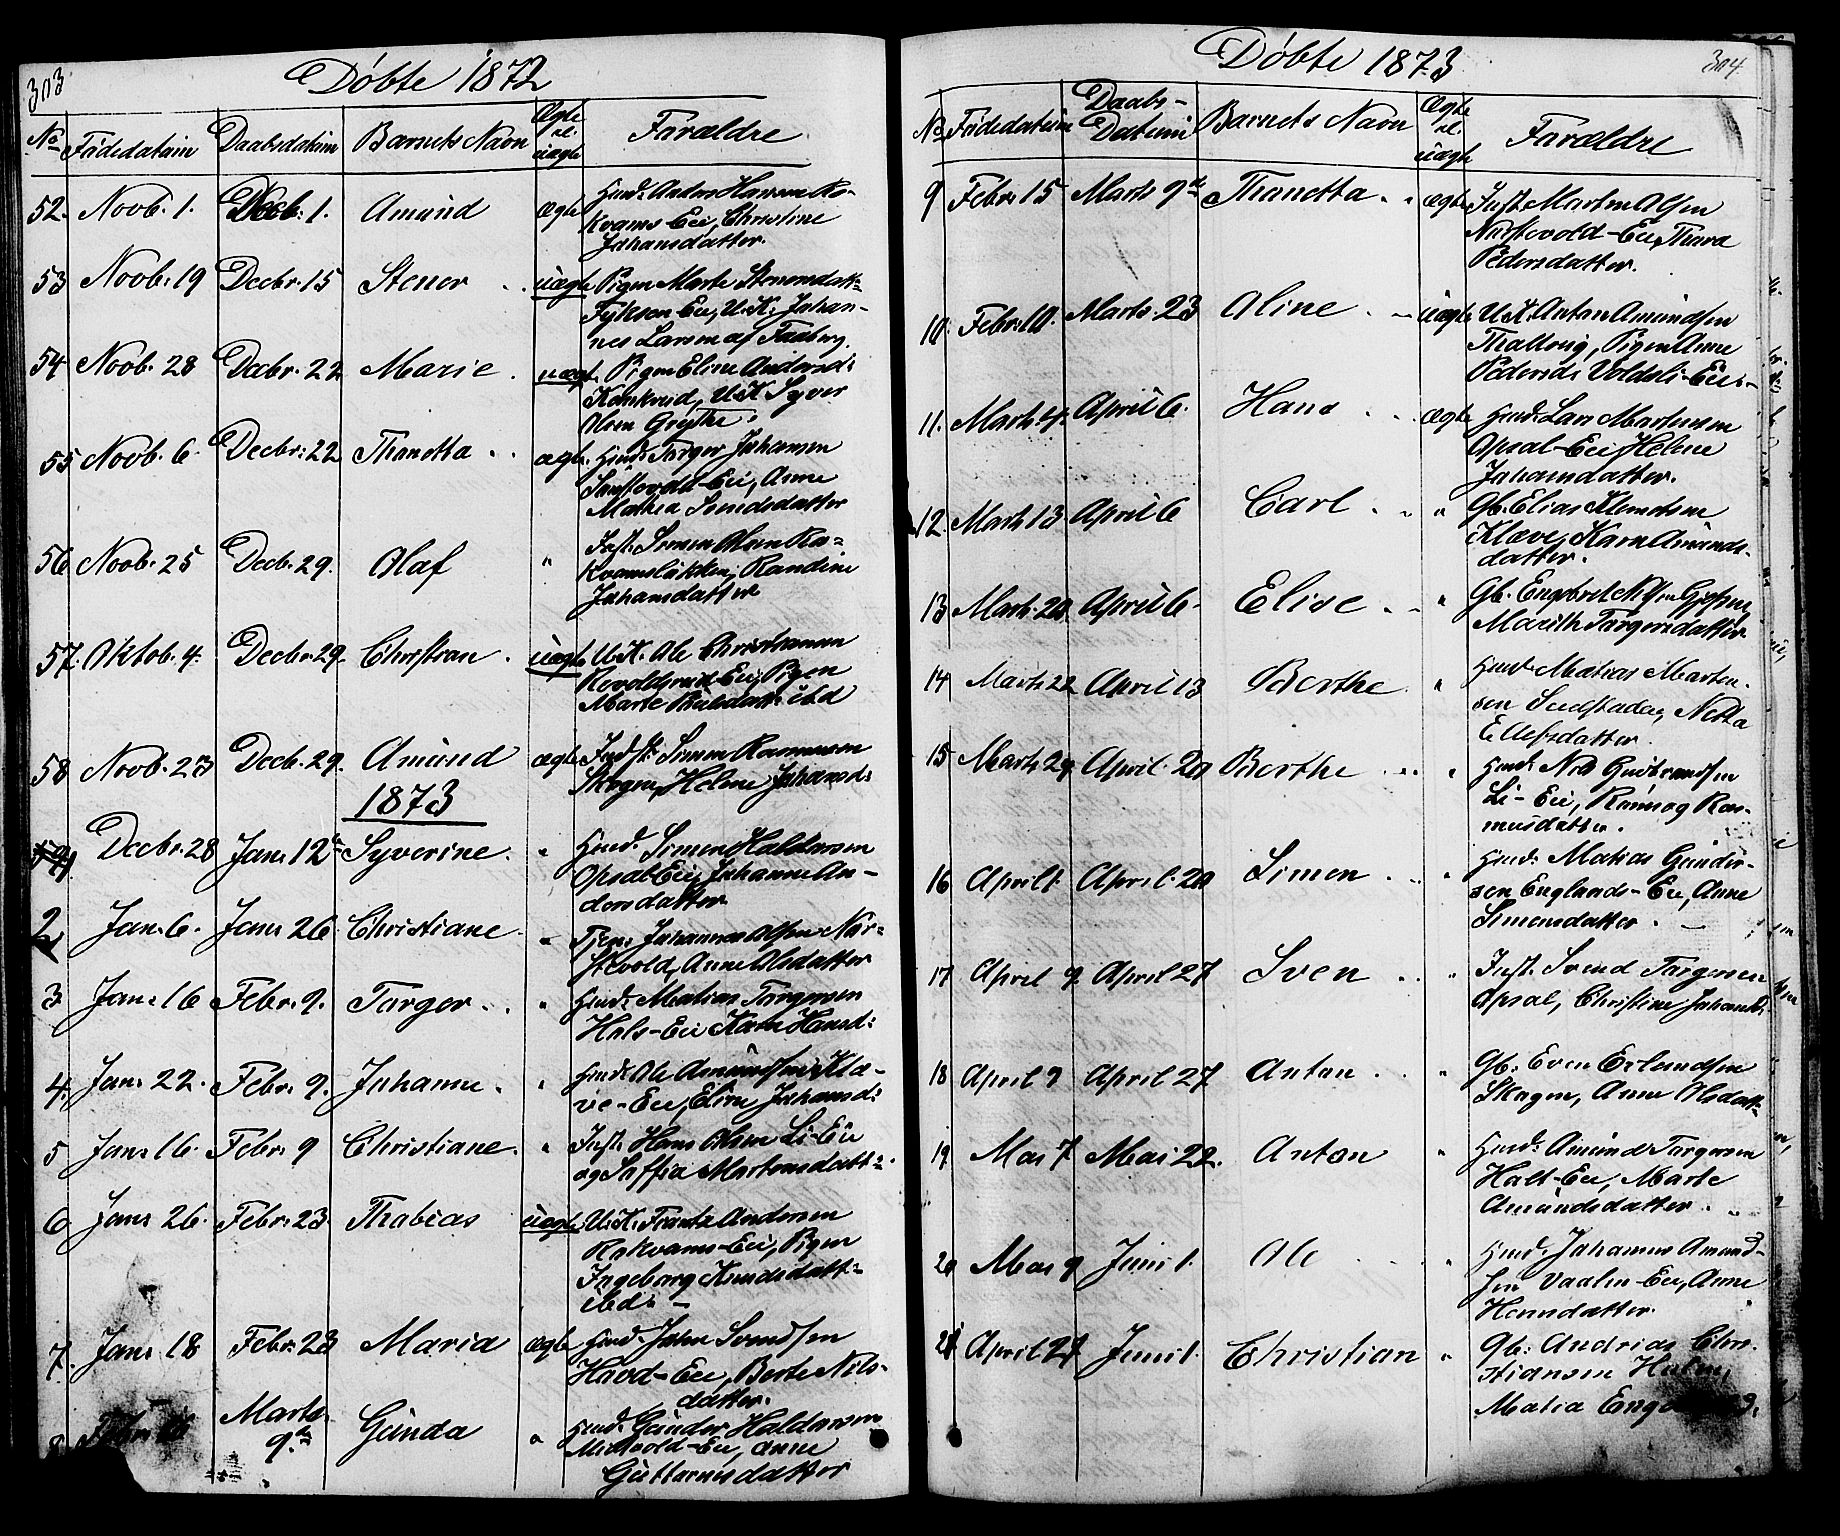 303
Døbte 1872
No Fødedatum Daabsdatum Barnets Navn Ægte el. uægte Forældre
52. Novb. 1. Decb. 1. Amund ægte Husmd. Anders Hansen Ro-
kvams-Eie, Christine
Johansdatter.
53 Novb. 19 Decbr. 15 Stener uægte Pigen Marte Stenersdatt:
Fykson-Eie, U.K. Johan-
nes Larsen af Faaberg.
54 Novb. 28 Decbr. 22 Marie uægt. Pigen Eline Andersd:
Kankrud, U.K. Syver
Olsen Grythe.
55 Novb. 6. Decbr. 22 Thonetta ægte Husmd. Torger Johansen
Eie, Anne
Mathea Svendsdatter
56 Novb. 25 Decb. 29. Olaf " Inst. Simen Olsen Ro-
kvamsløkken, Randine
Johansdatter
57. Oktob. 4. Decbr. 29. Christian uægte U.K. Ole Christiansen
Eie, Pigen
Marte ibd
58 Novb. 23 Decb. 29. Amund ægte Indst. Simen Rasmussen
Skogen, Helene Johansd:
1873
1 Decbr. 28 Jan. 12te Syverine. " Husmd. Simen Haldorsen
Opsal-Eie, Johanne An-
dersdatter
2 Jan. 6. Jan. 26 Christiane. " Tjen. Johannes Olsen Nor-
stevold, Anne Olsdatter
3 Jan. 16 Febr. 9. Torger " Husmd. Mathias Torgersen
Hols-Eie Karen Hansd:
4. Jan. 22. Febr. 9. Johanne. " Husmd. Ole Amundsen Klø-
ve-Eie, Eline Johansd:
5 Jan. 16. Febr. 9 Christiane. " Inst. Hans Olsen Li-Eie
og Soffia Martensdatt:
6 Jan. 26. Febr. 23. Thobias uægte U.K. Frants Andersen
Rokvams-Eie, Pigen
Ingeborg Knudsdatt:
ibd:
7. Jan. 18 Febr. 23 Maria ægte Husmd. John Svendsen
Eie, Berte Nils-
datter.
8 Febr. Marts 9de Gunda " Husmd. Gunder Haldorsen
Eie, Anne
Guttormsdatter
304
Døbte 1873
No Fødedatum Daabs-Datum Barnets Navn Ægte el. uægte Forældre
9 Febr. 15 Marts 9de Thonetta ægte Inst. Morten Olsen
Norstevold-Eie, Thora
Pedersdatter.
10. Febr. 10. Marts 23 Oline uægte U.K. Anton Amundsen
Pigen Anne
Pedersd: Voldsli-Eie
11. Marts 4. April 6. Hans ægte Husmd. Lars Martensen
Opsal-Eie, Helene
Johansdatter.
12. Marts 13 April 6 Carl " Gb. Elias Klemetsen
Kløve, Karen Amunds-
datter.
13 Marts 20. April 6. Elise " Gb. Engebret
Marith Torgersdatter
14 Marts 22 April 13 Berthe " Husmd. Mathias Marten-
sen Netta
Ellefsdatter.
15 Marts 29 April. 20 Berthe " Husmd. Nils Gudbrandsen
Li-Eie, Rønnog Ras-
musdatter.
16 April 1. April. 20 Simen " Husmd. Mathias Gunder-
sen Englands-Eie, Anne
Simensdatter.
17 April 9. April 27 Sven " Inst. Svend Torgersen
Opsal, Christine Johansd:
18 April 9 April 27 Anton " Gb. Even Erlandsen
Skogen, Anne Olsdatt:
19 Mai 7 Mai 22. Anton " Husmd. Amund Torgersen
Eie, Marte
Amundsdatter.
20 Mai 9 Juni 1. Ole " Husmd. Johannes Amund-
sen Vaalen-Eie, Anne
Hennsdatter.
21 April 27 Juni 1. Christian " Gb. Andreas Chri-
stiansen Holen,
Matea